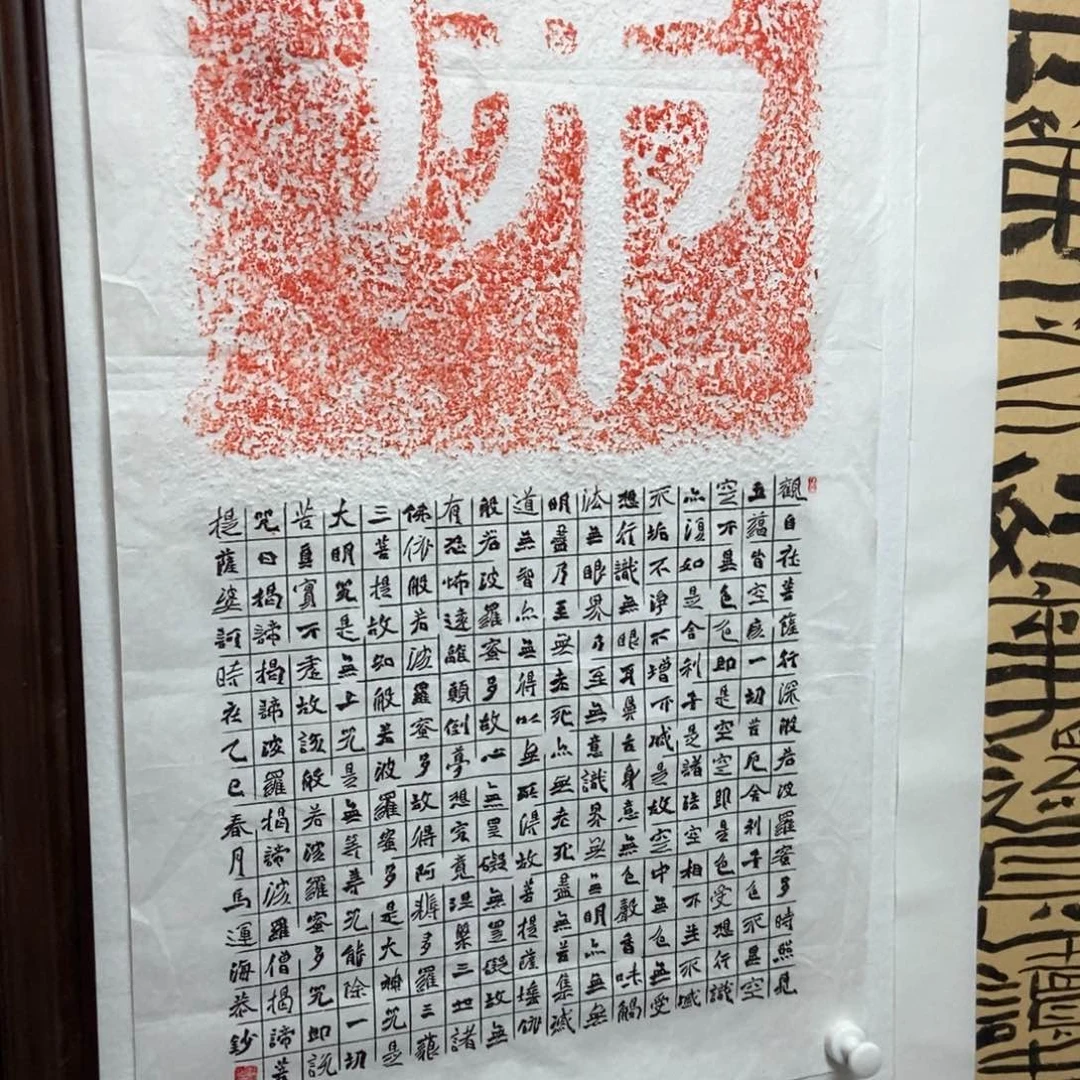 觀自在菩薩行深般若波羅蜜多時照見
五蘊皆空度一切苦厄舍利子色不異空
空不異色色即是空空即是色受想行識
亦復如是舍利子是諸法空相不生不滅
不垢不淨不增不減是故空中無色無受
想行識無眼耳鼻舌身意無色聲香味觸
法無眼界乃至無意識界無無明亦無無
明盡乃至無老死亦無老死盡無苦集滅
道無智亦無得以無所得故菩提薩埵依
般若波羅蜜多故心無罣礙無罣礙故無
有恐怖遠離顛倒夢想究竟涅槃三世諸
佛依般若波羅蜜多故得阿耨多羅三藐
三菩提故知般若波羅蜜多是大神咒是
大明咒是無上咒是無等等咒能除一切
苦真實不虛故說般若波羅蜜多咒即說
咒曰揭諦揭諦波羅揭諦波羅僧揭諦菩
提薩婆訶時在乙巳春月馬運海恭鈔